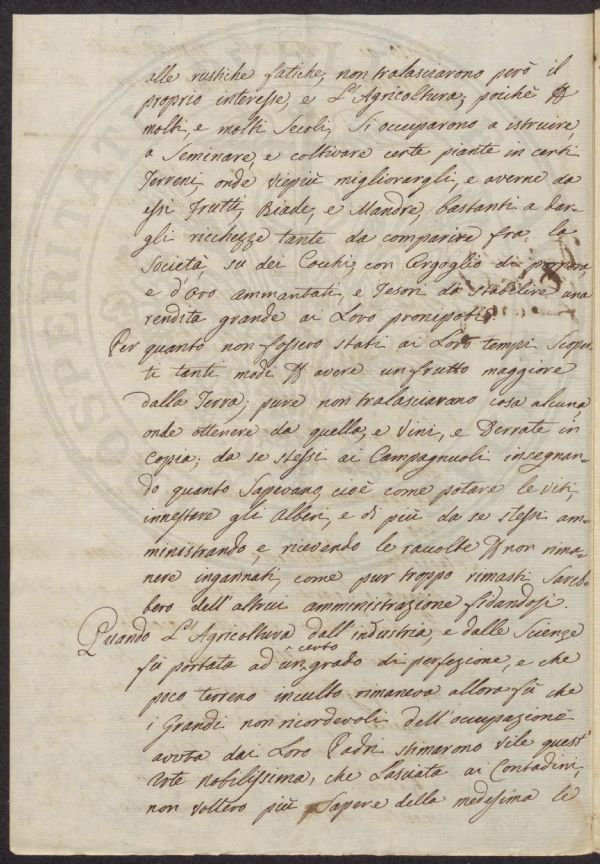 alle rustiche fatiche, non tralasciarono però il
proprio interesse, e L'Agricoltura; poichè
molti, e molti Secoli, Si occuparono a istruire,
a Seminare, e coltivare certe piante in certi
Terreni, onde viepiù migliorargli, e averne da
essi Frutti, Biade, e Mandre, bastanti a dar-
gli ricchezze tante da comparire fra la
Società, su dei Cocchi, con Orgoglio di porpora
e d'Oro ammantati, e Tesori da stabilire una
rendita grande ai Loro pronipoti.
Per quanto non fossero stati ai Loro tempi Scoper-
ti tanti modi avere un frutto maggiore
dalla Terra; pure non tralasciavano cosa alcuna,
onde ottenere da quella, e Vini, e Derrate in
copia; da se stessi ai Campagnuoli insegnan-
do quanto Sapevano, cioè come potare le viti,
innestare gli Alberi, e di più da se stessi am-
ministrando, e ricevendo le raccolte non rima-
nere ingannati, come pur troppo rimasti Sareb-
bero dell'altrui amministrazione fidandosi.
Quando L'Agricoltura dall'industria, e dalle Scienze
fù portata ad un certo grado di perfezione, e che
poco terreno inculto rimaneva allora fù che
i Grandi non ricordevoli dell'occupazione
avuta dai Loro Padri stimarono vile quest'
Arte nobilissima, che Lasciata ai Contadini,
non vollero più Sapere della medesima le